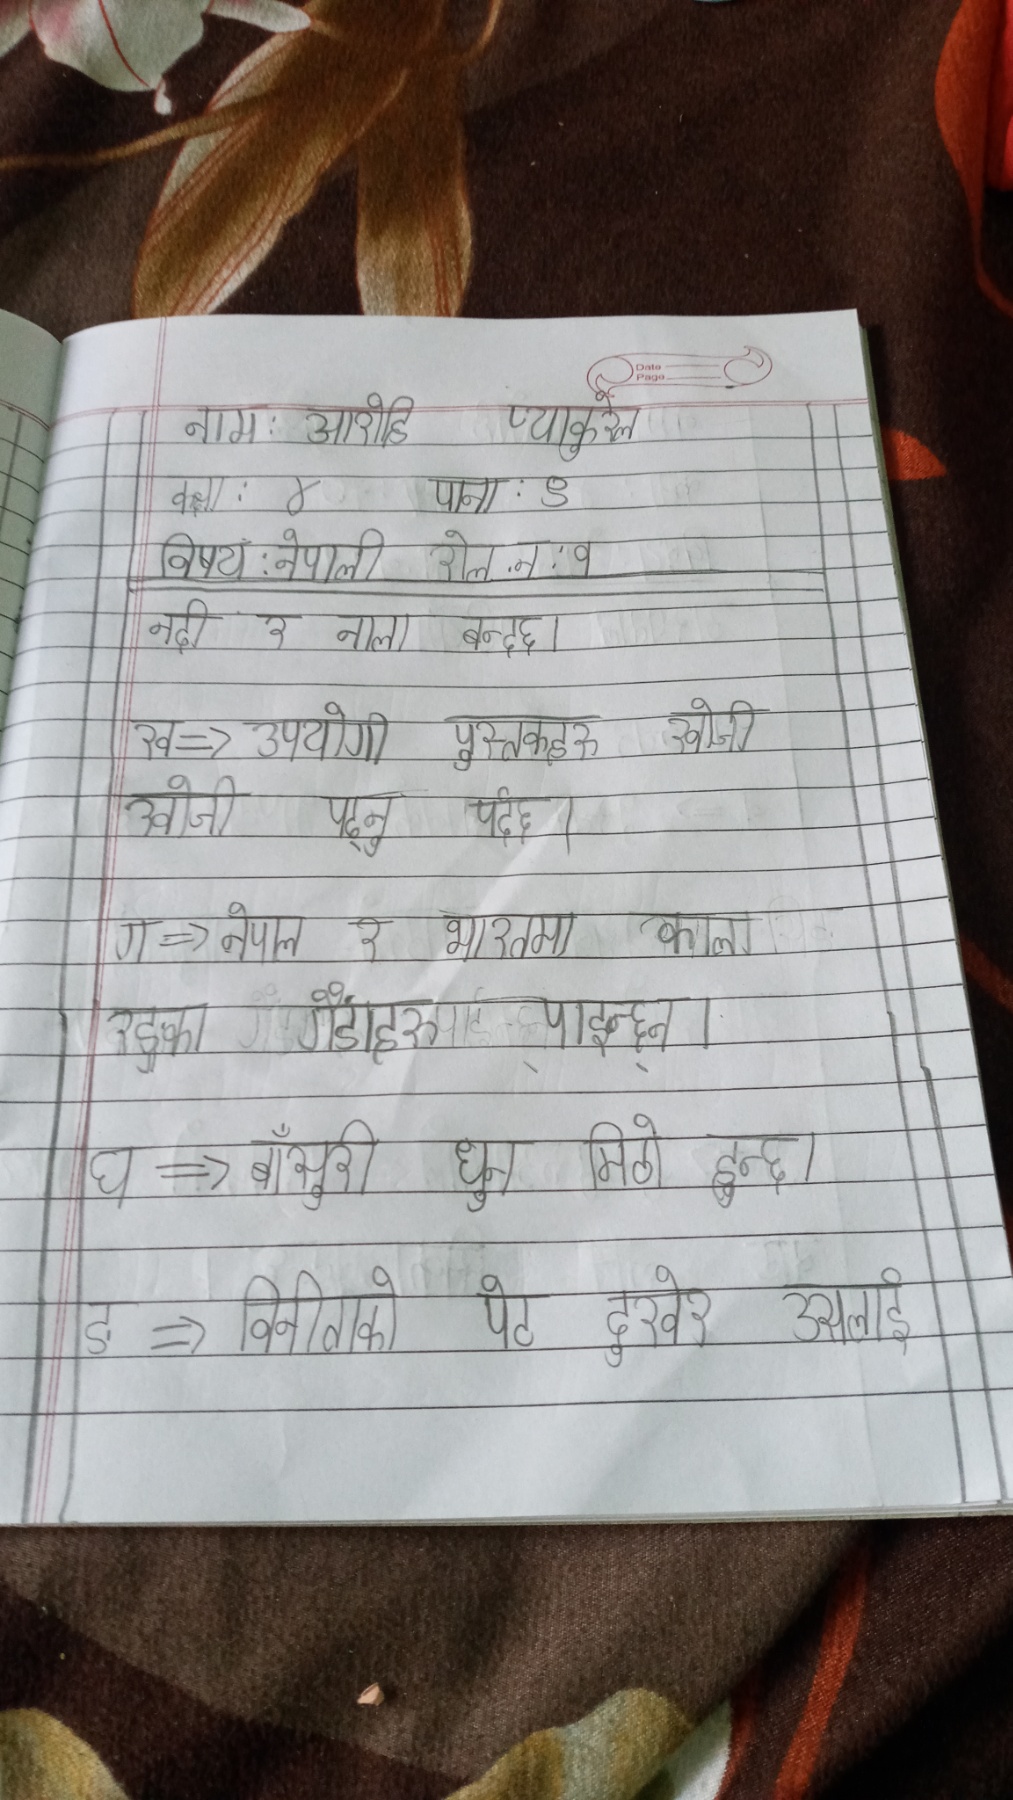 Date
Page
नाम: आरोहि प्याकुरेल
कक्षा: ४ पाना: ७
विषय: नेपाली रोल.न: १
नदी र नाला बन्दछ।
ख⇒ उपयोगी पुस्तकहरु खोजी
खोजी पढ्नु पर्दछ।
ग⇒ नेपाल र भारतमा काला
रङका गैंडाहरु पाइन्छन्।
घ ⇒ बाँसुरी धुन मिठो हुन्छ।
ङ ⇒ विनीताको पेट दुखेर उसलाई